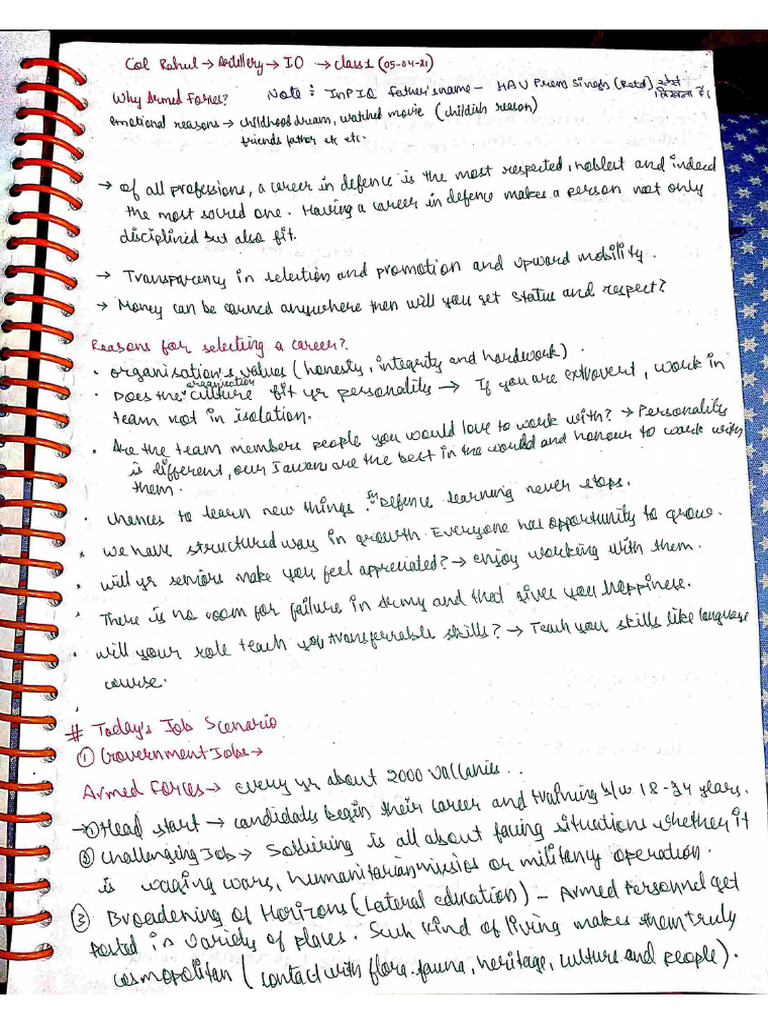 Col Rahul → Artillery → IO → class 1 (05-04-21)
Why Armed Forces? Note : In PIQ father's name - HAV Prem Singh (Retd) ऐसे लिखना है।
emotional reasons → childhood dream, watched movie (childish reason)
friends father etc etc.
→ of all professions, a career in defence is the most respected, noblest and indeed
the most sacred one. Having a career in defence makes a person not only
disciplined but also fit.
→ Transparency in selection and promotion and upward mobility.
→ Money can be earned anywhere then will you get status and respect?
Reasons for selecting a career?
• organisation's values (honesty, integrity and hardwork).
• Does the organisation culture fit yr personality → If you are extrovert, work in
team not in isolation.
• Are the team members people you would love to work with? → Personality
is different, our Jawan are the best in the world and honour to work with
them.
• chances to learn new things. In Defence learning never stops.
• we have structured way in growth. Everyone has opportunity to grow.
• will yr seniors make you feel appreciated? → enjoy working with them.
• There is no room for failure in army and that gives you happiness.
• will your role teach you transferrable skills? → Teach you skills like language
course.
# Today's Job Scenario
① Government Jobs →
Armed Forces → every yr about 2000 vaccancies..
→ ① Head start → candidates begin their career and training b/w 18-24 years.
② Challenging Job → Soldiering is all about facing situations whether it
is waging wars, humanitarian missios or military operation.
③ Broadening of Horizons (Lateral education) - Armed Personnel get
posted in variety of places. Such kind of living makes them truly
cosmopolitan (contact with flora-fauna, heritage, culture and people).